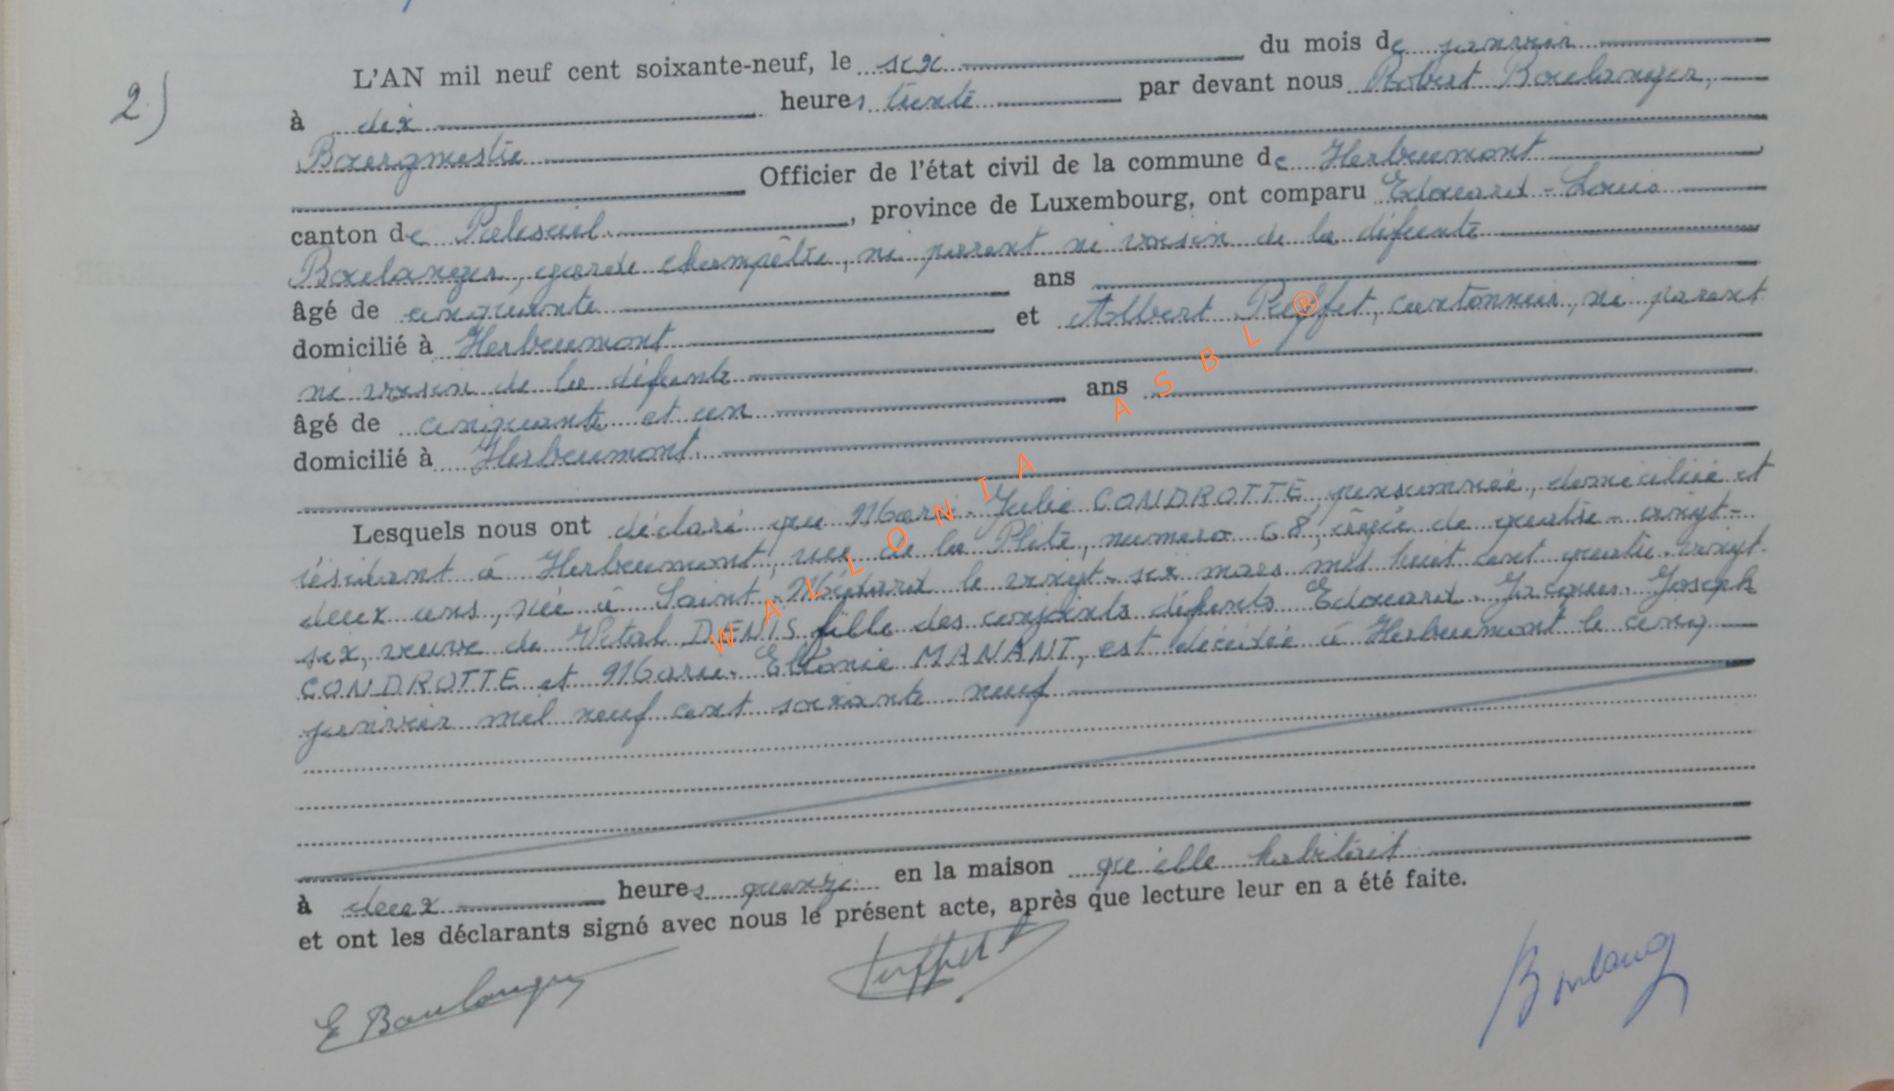 2)
L'AN mil neuf cent soixante-neuf, le six du mois de janvier
à dix heures trente par devant nous Robert Boulanger,
Bourgmestre
Officier de l'état civil de la commune de Herbeumont
canton de Paliseul, province de Luxembourg, ont comparu Edouard-Louis
Boulanger, garde champêtre, ni parent ni voisin de la défunte
âgé de cinquante ans
domicilié à Herbeumont et Albert cantonnier, ni parent
ni voisin de la défunte
âgé de cinquante et un ans
domicilié à Herbeumont.
Lesquels nous ont déclaré que Marie-Julie CONDROTTE, pensionnée, domiciliée et
résidant à Herbeumont, rue de la numéro 68, âgée de quatre-vingt-
deux ans, née à Saint-Médard le vingt-six mars mil huit cent quatre-vingt-
six, veuve de Vital DENIS fille des conjoints défunts Edouard-Jacques-Joseph
CONDROTTE et Marie- MANANT, est décédée à Herbeumont le cinq
janvier mil neuf cent soixante-neuf
à deux heures quinze en la maison qu'elle habitait
et ont les déclarants signé avec nous le présent acte, après que lecture leur en a été faite.
E Boulanger
Boulang
WALLONIA ASBL ®